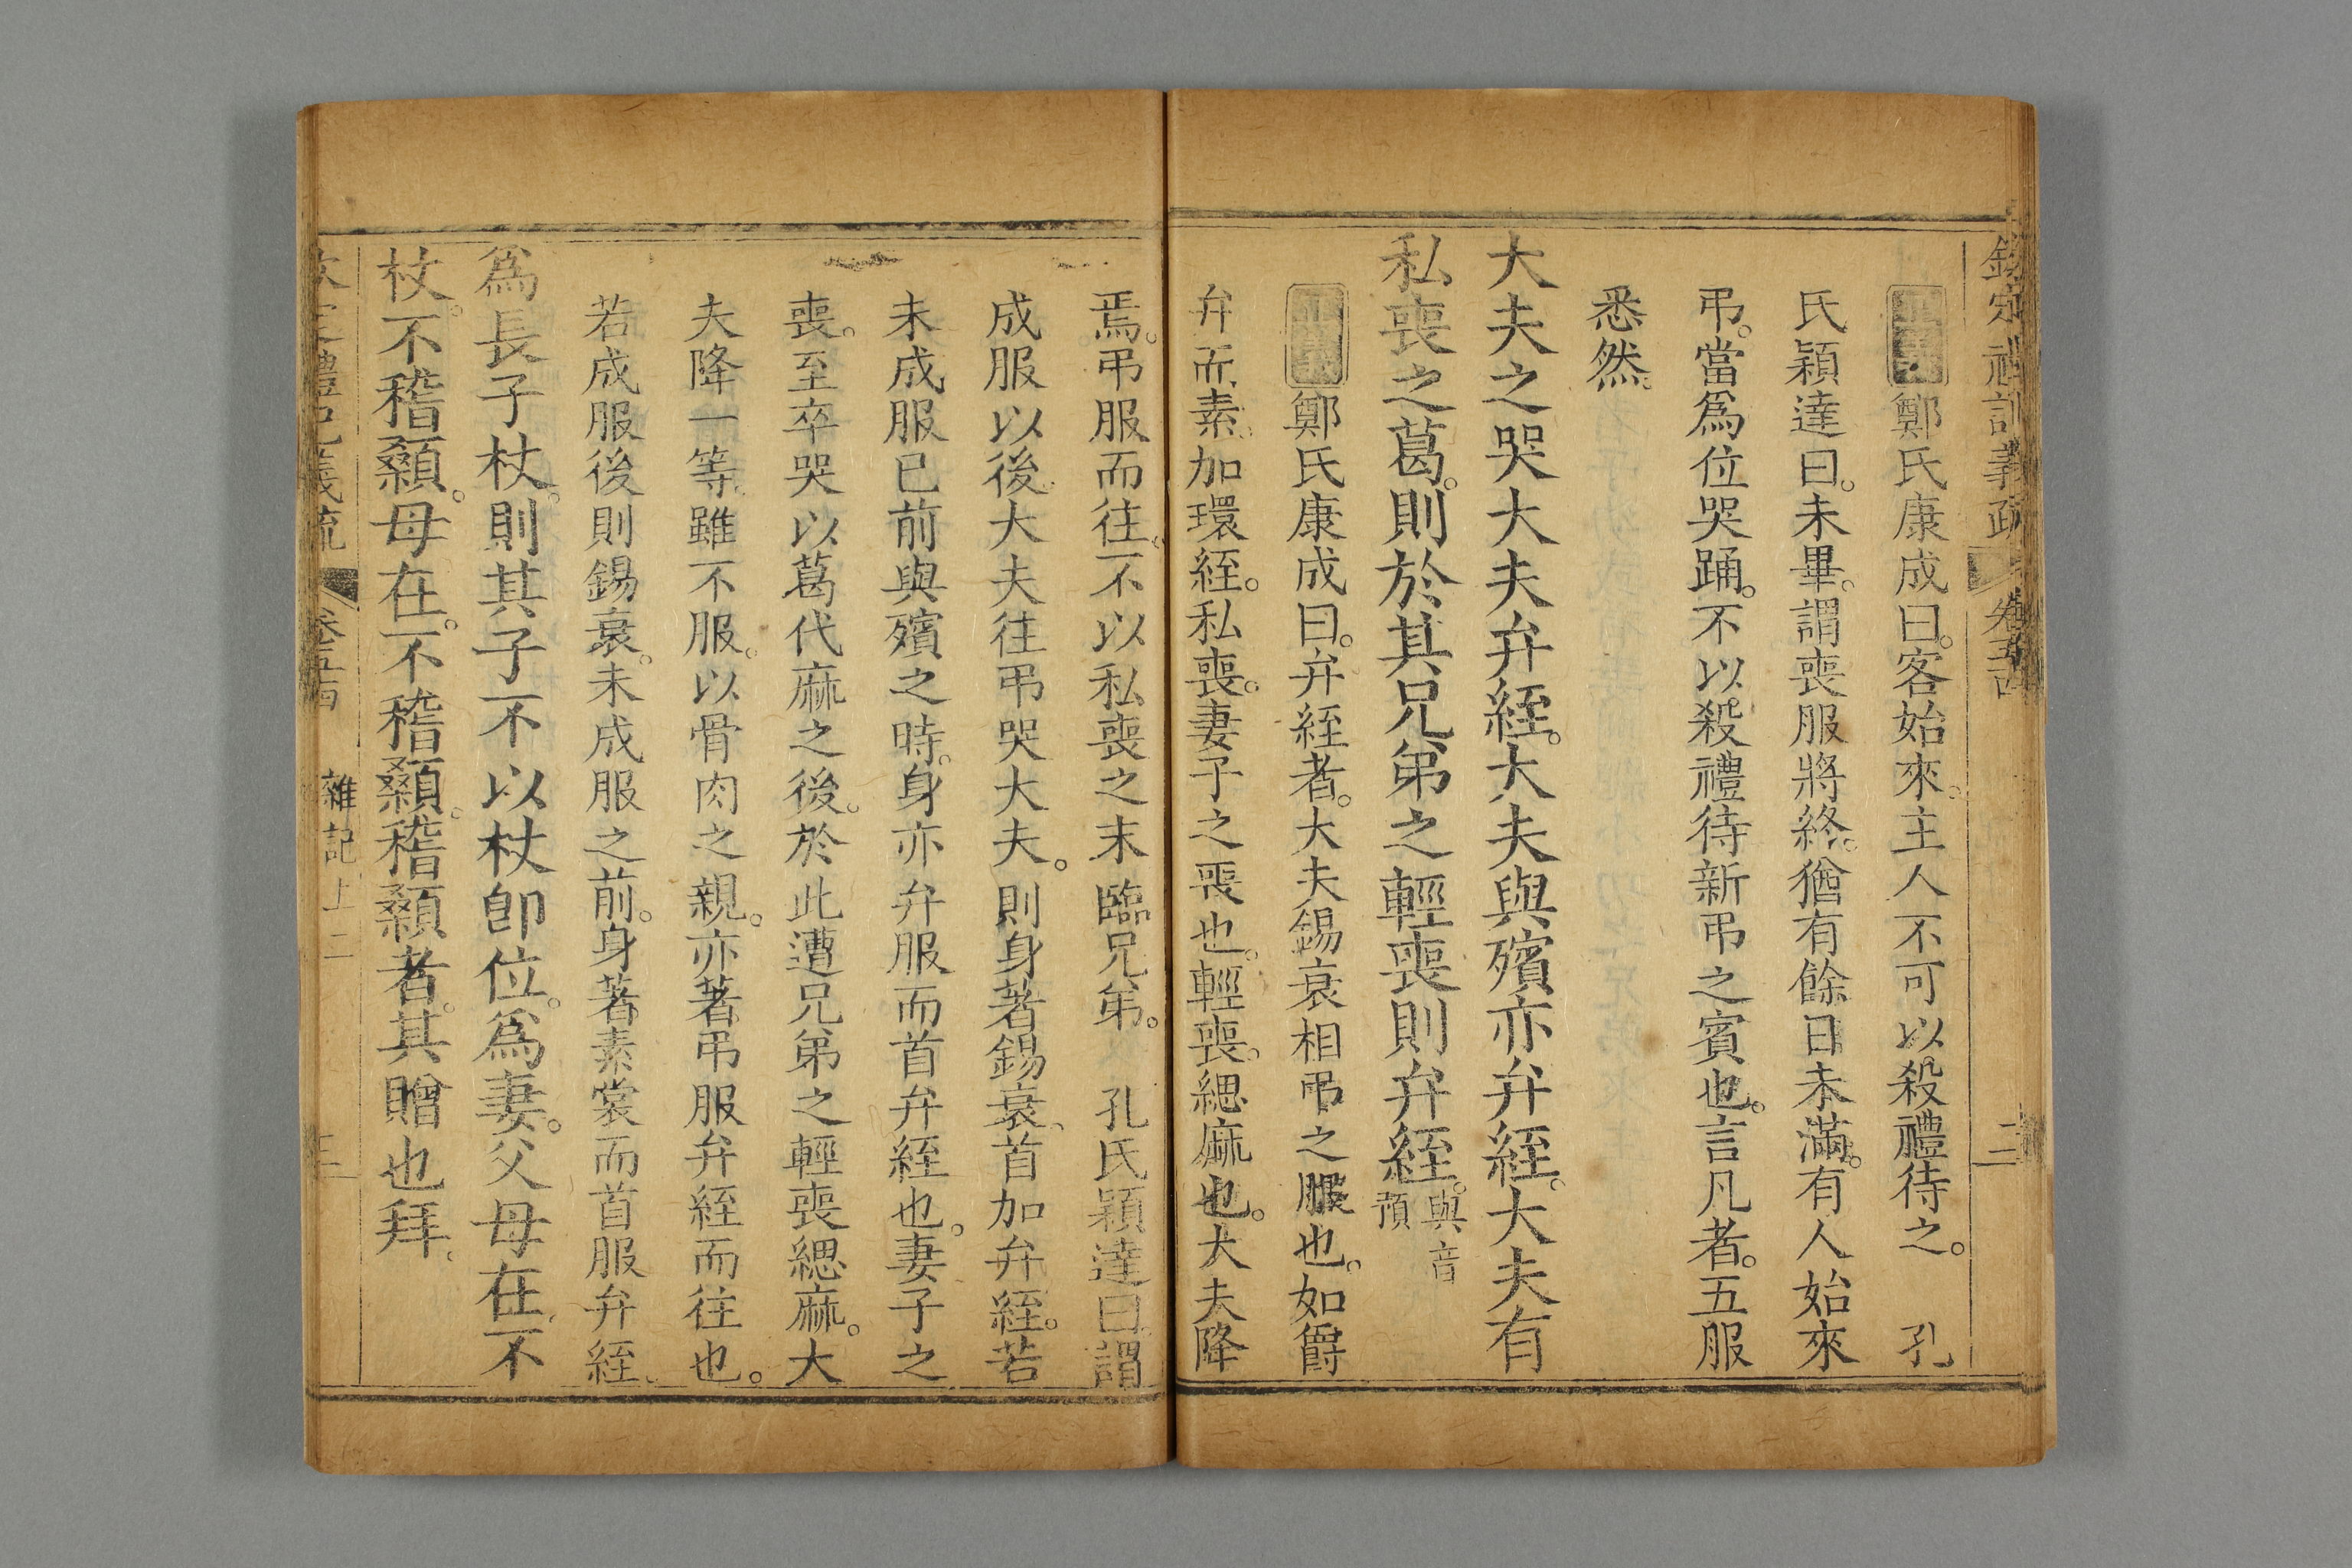 欽定禮記義疏 卷五十四 二
正義鄭氏康成曰。客始來。主人不可以殺禮待之。 孔
氏穎達曰。未畢。謂喪服將終。猶有餘日未滿。有人始來
弔。當爲位哭踊。不以殺禮待新弔之賓也。言凡者。五服
悉然。
大夫之哭大夫弁絰。大夫與殯亦弁絰。大夫有
私喪之葛。則於其兄弟之輕喪則弁絰。與音預
正義鄭氏康成曰。弁絰者。大夫錫衰相弔之服也。如爵
弁而素。加環絰。私喪。妻子之喪也。輕喪。緦麻也。大夫降
焉。弔服而往。不以私喪之末臨兄弟。 孔氏穎達曰。謂
成服以後。大夫往弔哭大夫。則身著錫衰。首加弁絰。若
未成服已前與殯之時。身亦弁服而首弁絰也。妻子之
喪。至卒哭以葛代麻之後。於此遭兄弟之輕喪緦麻。大
夫降一等。雖不服。以骨肉之親。亦著弔服弁絰而往也。
若成服後則錫衰。未成服之前。身著素裳而首服弁絰。
爲長子杖。則其子不以杖卽位。爲妻。父母在。不
杖。不稽顙。母在。不稽顙。稽顙者。其贈也拜。
禮記義疏 卷五十四 雜記上二